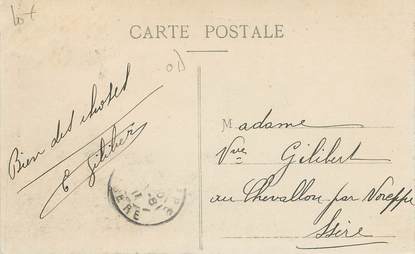 lot
CARTE POSTALE
Bien des choses
E Gilibert
Madame
Vve Gilibert
au Chevallon par Voreppe
Isère
ISERE